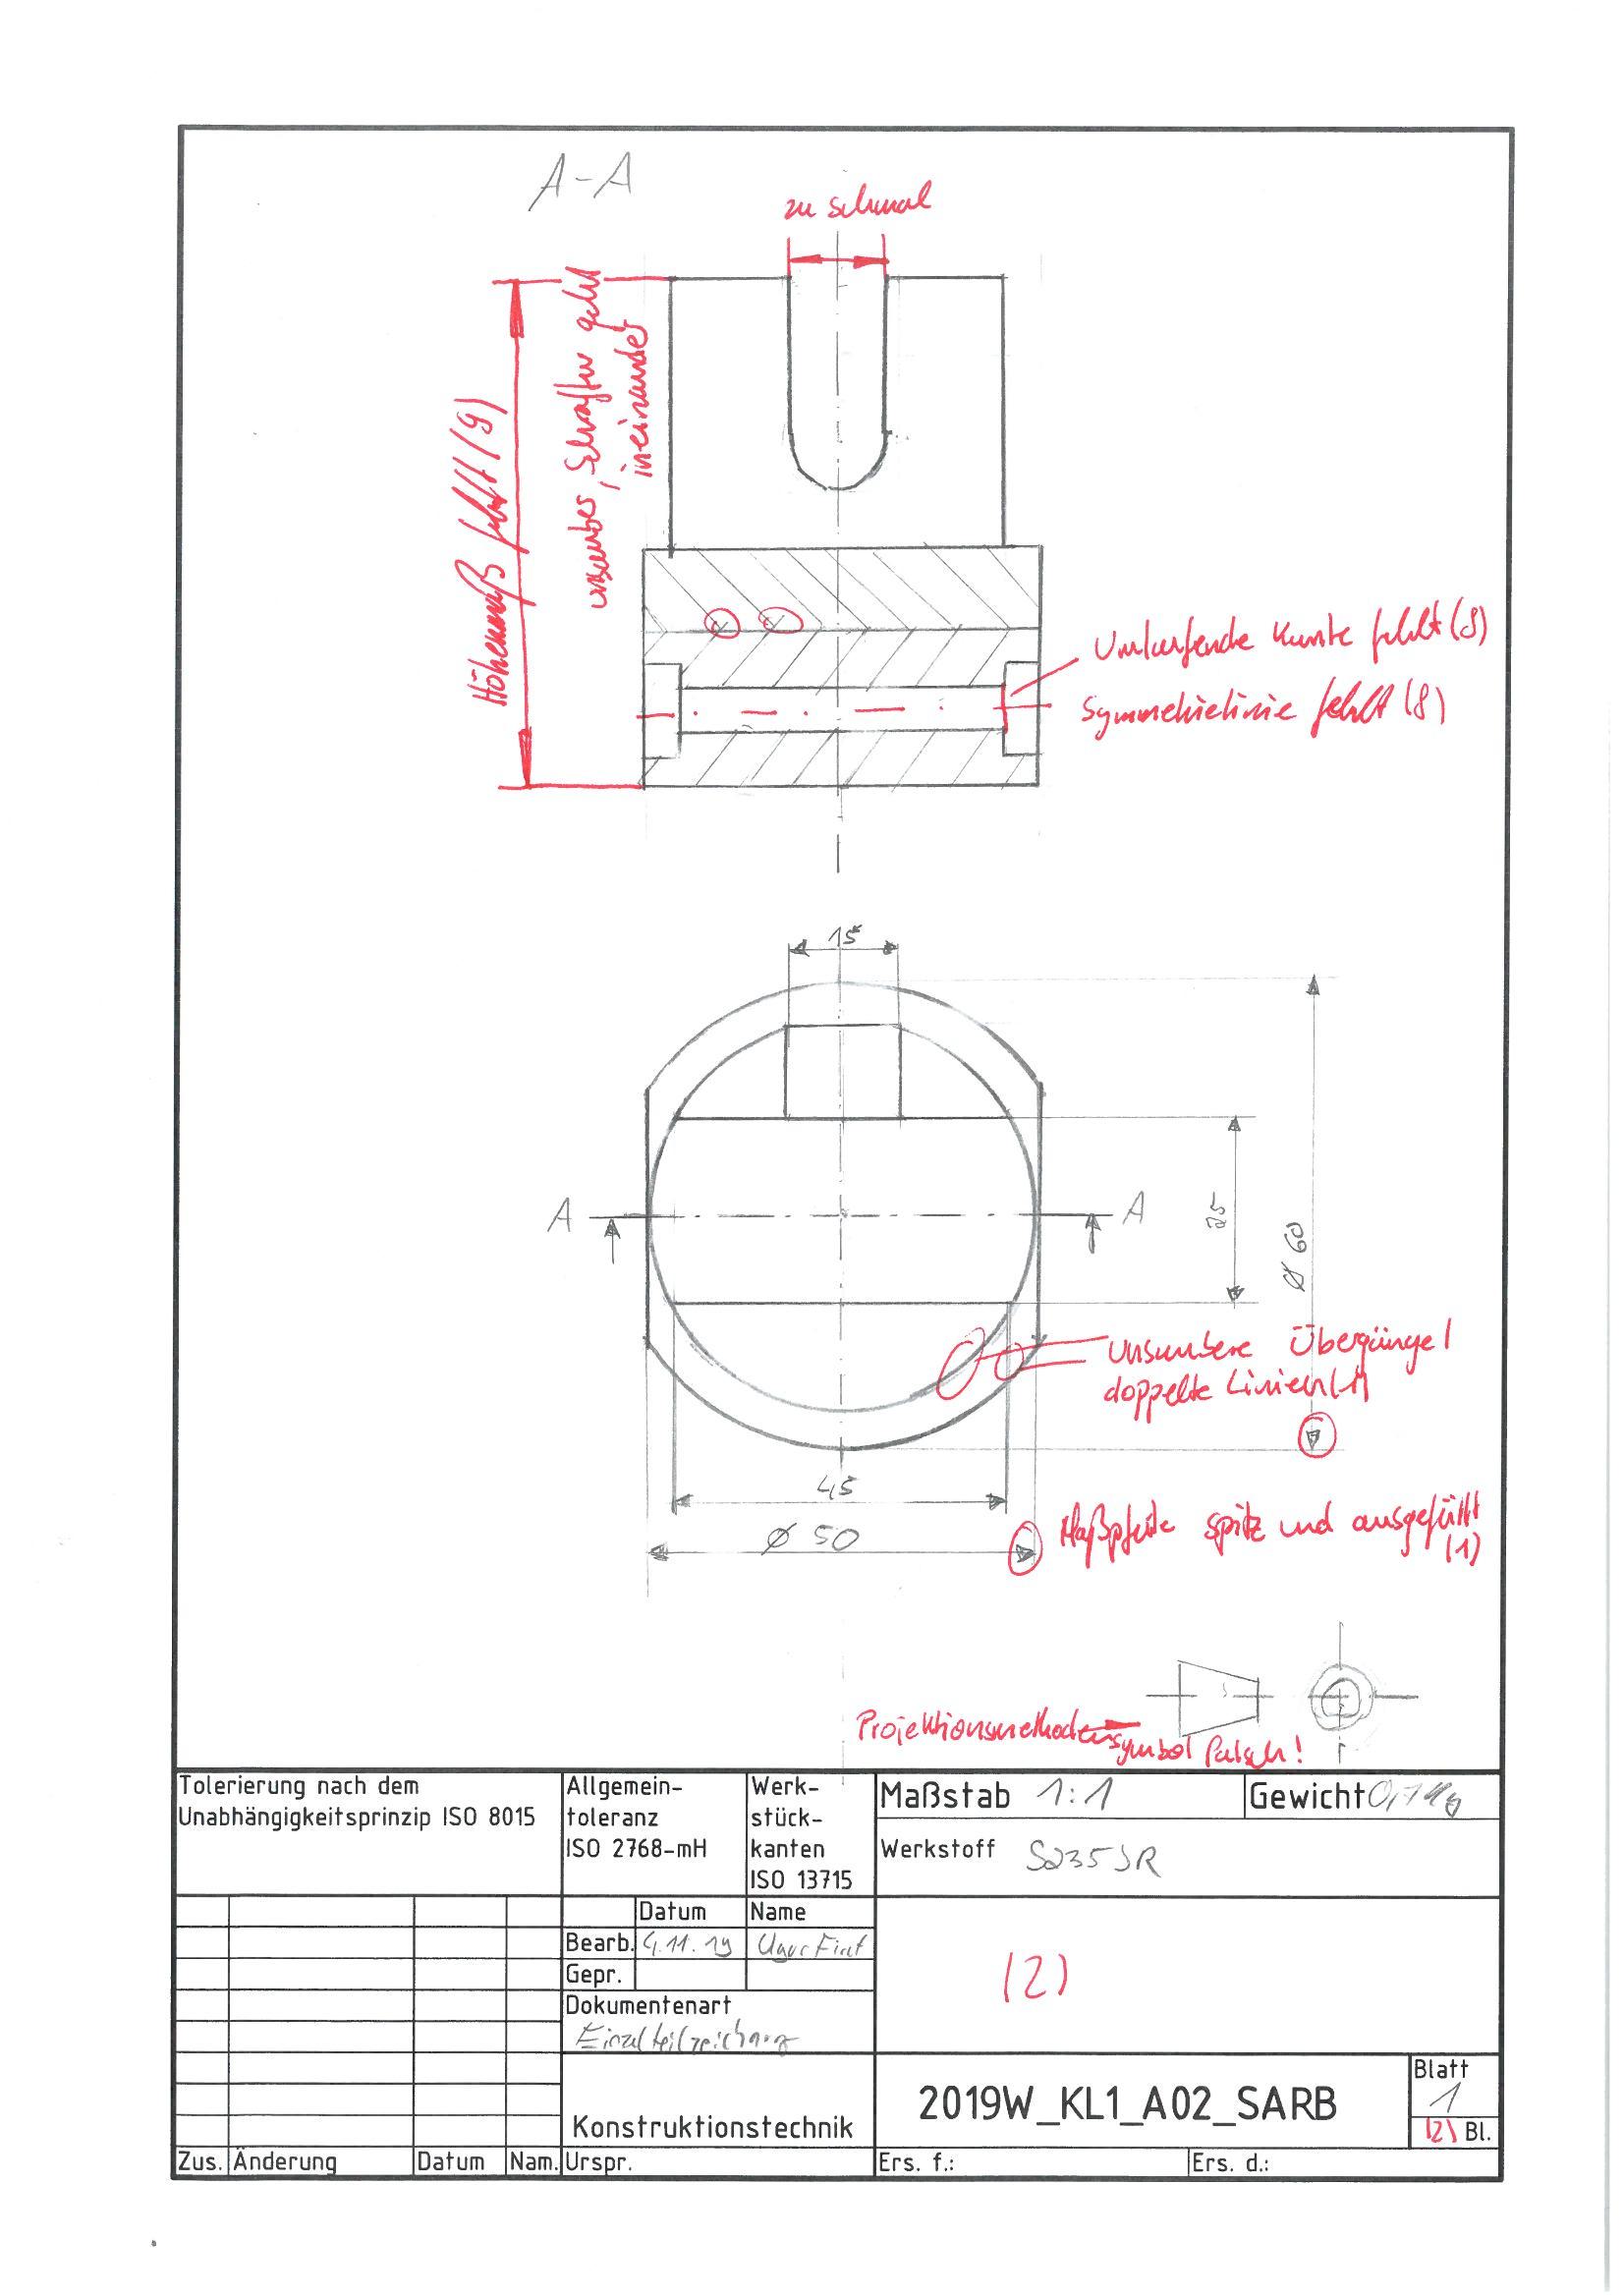 A-A
zu schmal
Höhenmaß fehlt (9)
unsauber, Schraffur geht
ineinander
Umlaufende Kante fehlt (8)
Symmetrielinie fehlt (8)
15
A
A
25
Ø 60
Unsaubere Übergänge /
doppelte Linien (1)
45
Ø 50
Maßpfeile spitz und ausgefüllt
(1)
Projektionsmethoden
symbol falsch!
Tolerierung nach dem
Unabhängigkeitsprinzip ISO 8015
Allgemein-
toleranz
ISO 2768-mH
Werk-
stück-
kanten
ISO 13715
Maßstab 1:1
Gewicht 0,7Kg
Werkstoff S235JR
Datum
Name
Bearb. 4.11.19 Ugur Firat
Gepr.
Dokumentenart
Einzelteilzeichnung
(2)
Konstruktionstechnik
2019W_KL1_A02_SARB
Blatt
1
(2) Bl.
Zus. Änderung Datum Nam. Urspr.
Ers. f.:
Ers. d.: